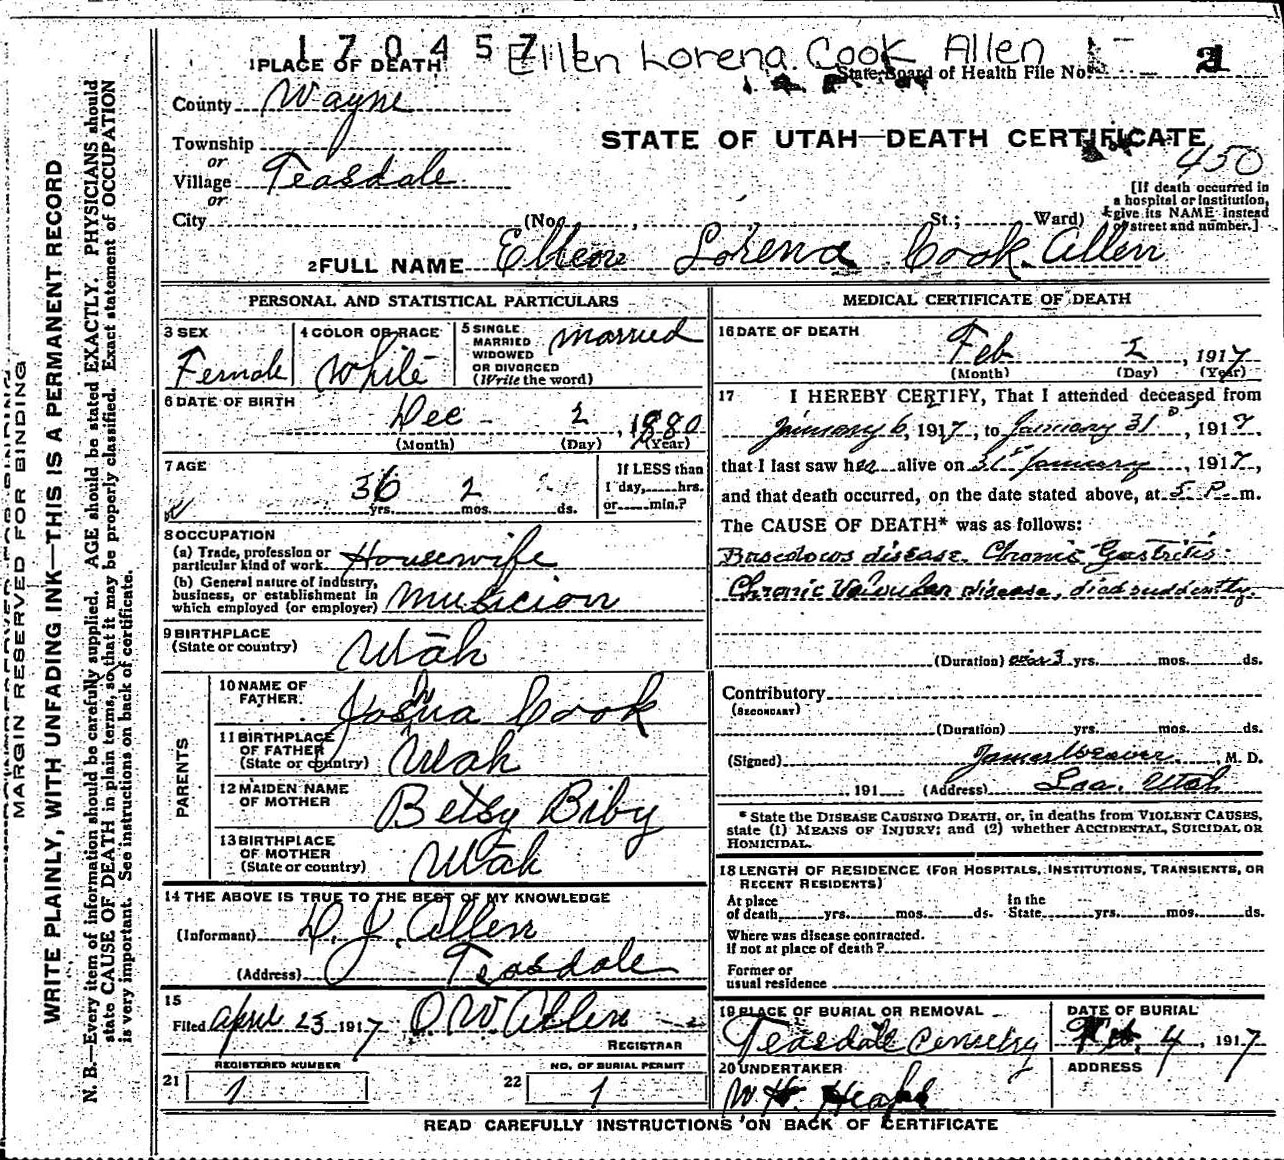 170457
Ellen Lorena Cook Allen
1 PLACE OF DEATH
State Board of Health File No.
County Wayne
STATE OF UTAH—DEATH CERTIFICATE
Township
450
or
Village Teasdale
or
City (No. St.; Ward)
[If death occurred in
a hospital or institution,
give its NAME instead
of street and number.]
2 FULL NAME Ellen Lorena Cook Allen
PERSONAL AND STATISTICAL PARTICULARS
3 SEX
Female
4 COLOR OR RACE
White
5 SINGLE
MARRIED
WIDOWED
OR DIVORCED
(Write the word)
married
6 DATE OF BIRTH
Dec 2, 1880
(Month) (Day) (Year)
7 AGE
36 yrs. 2 mos. ds.
If LESS than
1 day, hrs.
or min.?
8 OCCUPATION
(a) Trade, profession or
particular kind of work Housewife
(b) General nature of industry,
business, or establishment in
which employed (or employer) Musicion
9 BIRTHPLACE
(State or country)
Utah
PARENTS
10 NAME OF
FATHER
Joshua Cook
11 BIRTHPLACE
OF FATHER
(State or country)
Utah
12 MAIDEN NAME
OF MOTHER
Betsy Biby
13 BIRTHPLACE
OF MOTHER
(State or country)
Utah
14 THE ABOVE IS TRUE TO THE BEST OF MY KNOWLEDGE
(Informant) D. J. Allen
(Address) Teasdale
15
Filed April 25 1917 O. W. Allen
REGISTRAR
REGISTERED NUMBER
21 1
NO. OF BURIAL PERMIT
22 1
MEDICAL CERTIFICATE OF DEATH
16 DATE OF DEATH
Feb 2, 1917
(Month) (Day) (Year)
17 I HEREBY CERTIFY, That I attended deceased from
January 6, 1917, to January 31, 1917,
that I last saw her alive on 31st January, 1917,
and that death occurred, on the date stated above, at 5 P. m.
The CAUSE OF DEATH* was as follows:
Basedows disease. Chronic Gastritis.
Chronic Valvular disease, died suddently.
(Duration) over 3 yrs. mos. ds.
Contributory
(SECONDARY)
(Duration) yrs. mos. ds.
(Signed) James Weaver, M. D.
, 191 (Address) Loa, Utah
* State the DISEASE CAUSING DEATH, or, in deaths from VIOLENT CAUSES,
state (1) MEANS OF INJURY; and (2) whether ACCIDENTAL, SUICIDAL OR
HOMICIDAL.
18 LENGTH OF RESIDENCE (FOR HOSPITALS, INSTITUTIONS, TRANSIENTS, OR
RECENT RESIDENTS)
At place
of death yrs. mos. ds.
In the
State yrs. mos. ds.
Where was disease contracted.
If not at place of death?
Former or
usual residence
19 PLACE OF BURIAL OR REMOVAL
Teasdale Cemetry
DATE OF BURIAL
Feb. 4, 1917
20 UNDERTAKER
W. H.
ADDRESS
READ CAREFULLY INSTRUCTIONS ON BACK OF CERTIFICATE
MARGIN RESERVED FOR BINDING
WRITE PLAINLY, WITH UNFADING INK—THIS IS A PERMANENT RECORD
N. B.—Every item of information should be carefully supplied. AGE should be stated EXACTLY. PHYSICIANS should
state CAUSE OF DEATH in plain terms, so that it may be properly classified. Exact statement of OCCUPATION
is very important. See instructions on back of certificate.